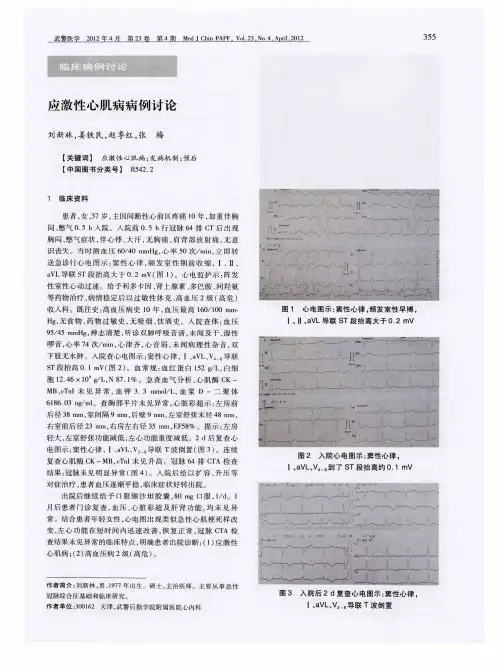 武警医学 2012年4月 第23卷 第4期 Med J Chin PAPF, Vol. 23, No. 4, April, 2012
355
临床病例讨论
应激性心肌病病例讨论
刘新林,姜铁民,赵季红,张 梅
【关键词】 应激性心肌病;发病机制;预后
【中国图书分类号】 R542.2
1 临床资料
患者,女,37岁,主因间断性心前区疼痛10年,加重伴胸
闷、憋气0.5 h入院。入院前0.5 h行冠脉64排CT后出现
胸闷、憋气症状,伴心悸、大汗,无胸痛、肩背部放射痛,无意
识丧失。当时测血压60/40 mmHg,心率50次/min,立即转
送急诊行心电图示:窦性心律,频发室性期前收缩,Ⅰ、Ⅱ、
aVL导联ST段抬高大于0.2 mV(图1)。心电监护示:阵发
性室性心动过速。给予利多卡因、肾上腺素、多巴胺、间羟胺
等药物治疗,病情稳定后以过敏性休克、高血压2级(高危)
收入科。既往史:高血压病史10年,血压最高160/100 mm-
Hg,无食物、药物过敏史,无吸烟、饮酒史。入院查体:血压
95/45 mmHg,神志清楚,听诊双肺呼吸音清,未闻及干、湿啰
啰音,心率74次/min,心律齐,心音弱,未闻病理性杂音,双
下肢无水肿。入院查心电图示:窦性心律,Ⅰ、aVL、V4-6导联
ST段抬高0.1 mV(图2)。血常规:血红蛋白152 g/L,白细
胞12.46×10⁹ g/L,N 87.1%。急查血气分析、心肌酶CK-
MB、cTnI未见异常,血钾3.3 mmol/L,血浆D-二聚体
6186.03 ng/ml。查胸部平片未见异常,心脏彩超示:左房前
后径38 mm,室间隔9 mm,后壁9 mm,左室舒张末径48 mm,
右室前后径23 mm,右房左右径35 mm,EF58%。提示:左房
轻大,左室舒张功能减低,左心功能重度减低。2 d后复查心
电图示:窦性心律,Ⅰ、aVL、V2-6导联T波倒置(图3)。连续
复查心肌酶CK-MB、cTnI未见升高。冠脉64排CTA检查
结果:冠脉未见明显异常(图4)。入院后给以扩容、升压等
对症治疗,患者血压逐渐平稳,临床症状好转出院。
出院后继续给予口服缬沙坦胶囊,80 mg口服,1/d。1
月后患者门诊复查,血压、心脏彩超及肝肾功能,均未见异
常。结合患者年轻女性,心电图出现类似急性心肌梗死样改
变,左心功能在短时间内迅速改善,恢复正常,冠脉CTA检
查结果未见异常的临床特点,明确患者出院诊断:(1)应激性
心肌病;(2)高血压病2级(高危)。
作者简介:刘新林,男,1977年出生。硕士,主治医师。主要从事急性
冠脉综合征基础和临床研究。
作者单位:300162 天津,武警后勤学院附属医院心内科
图1 心电图示:窦性心律,频发室性早搏,
Ⅰ、Ⅱ、aVL导联ST段抬高大于0.2 mV
图2 入院心电图示:窦性心律,
Ⅰ、aVL、V4-6到了ST段抬高约0.1 mV
图3 入院后2 d复查心电图示:窦性心律,
Ⅰ、aVL、V2-6导联T波倒置